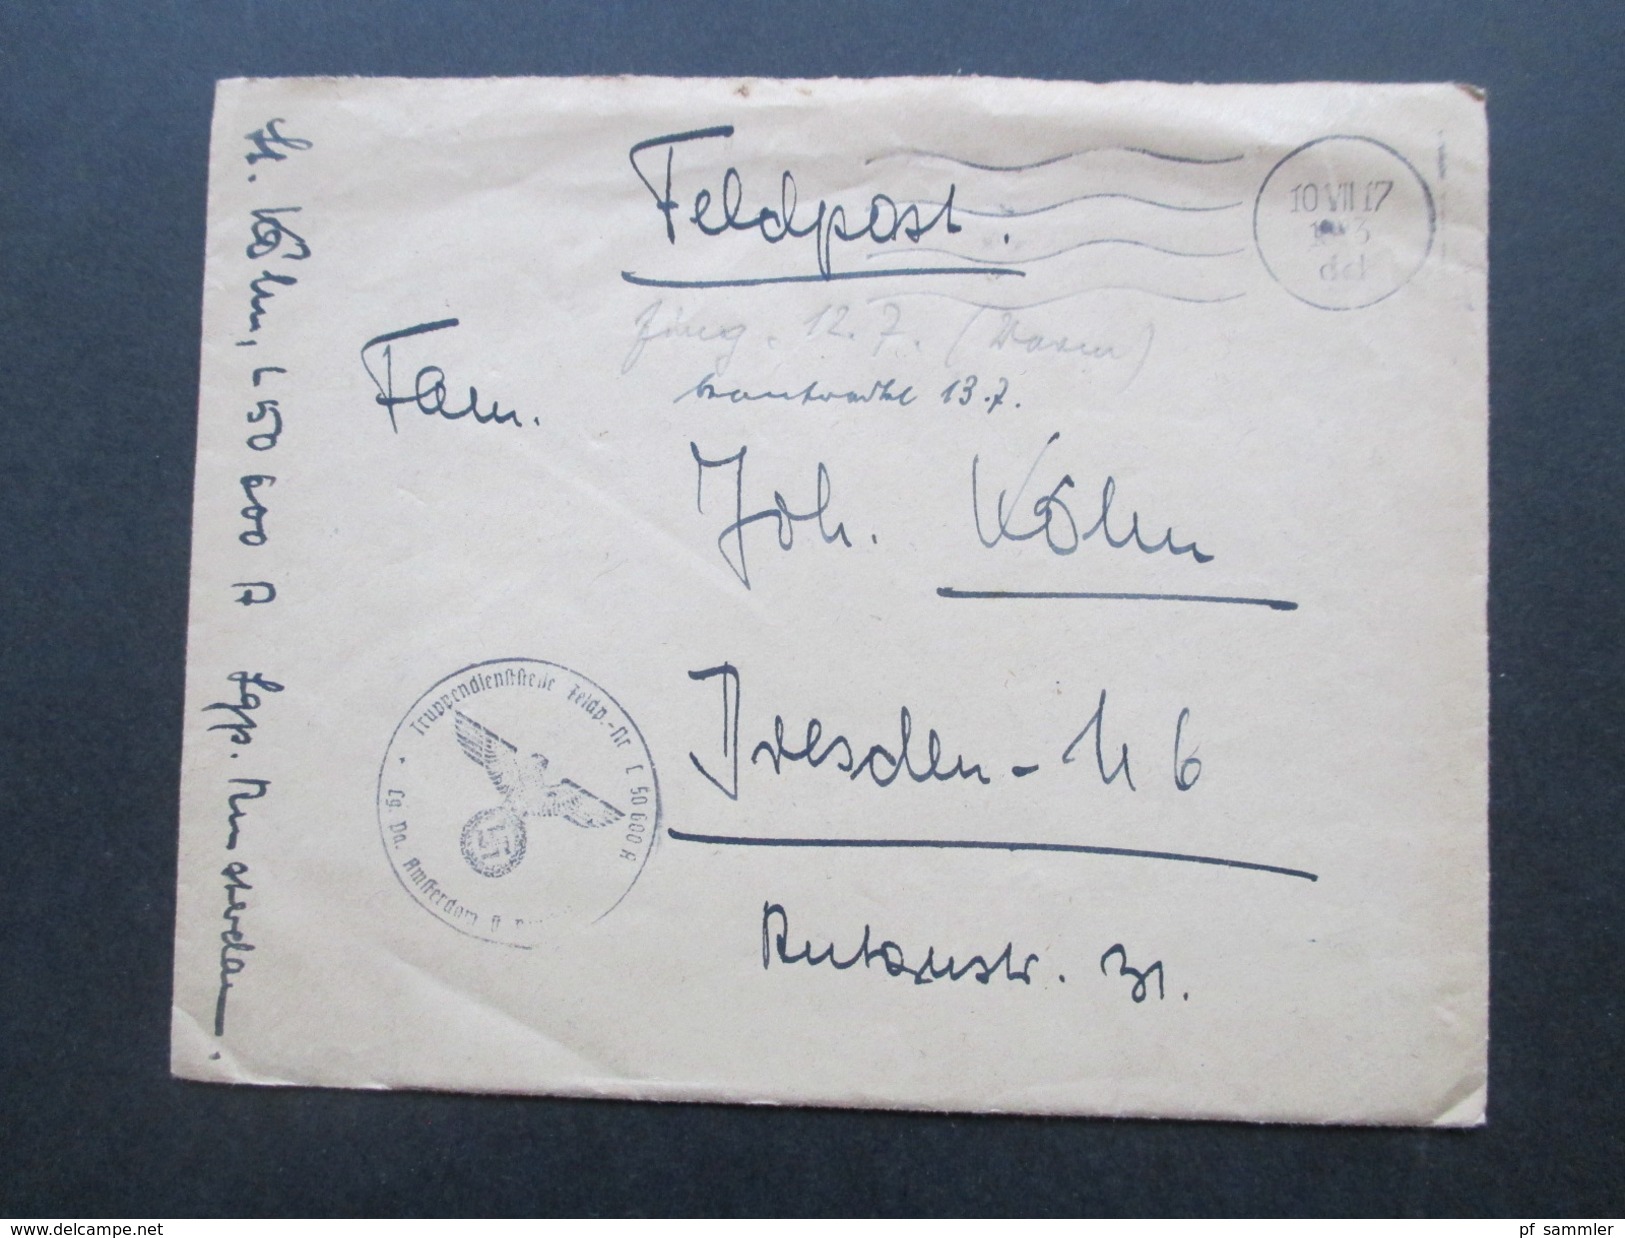 Feldpost.
10 VII 17
12.7.
beantwortet 13.7.
Fam.
Joh. Köhn
Dresden - N 6
31.
H. Köhn, L 50 600 A Lgp. Amsterdam.
Truppendienststelle Feldp.-Nr L 50 600 A
Lg. Pa. Amsterdam
delcampe.net
pf_sammler